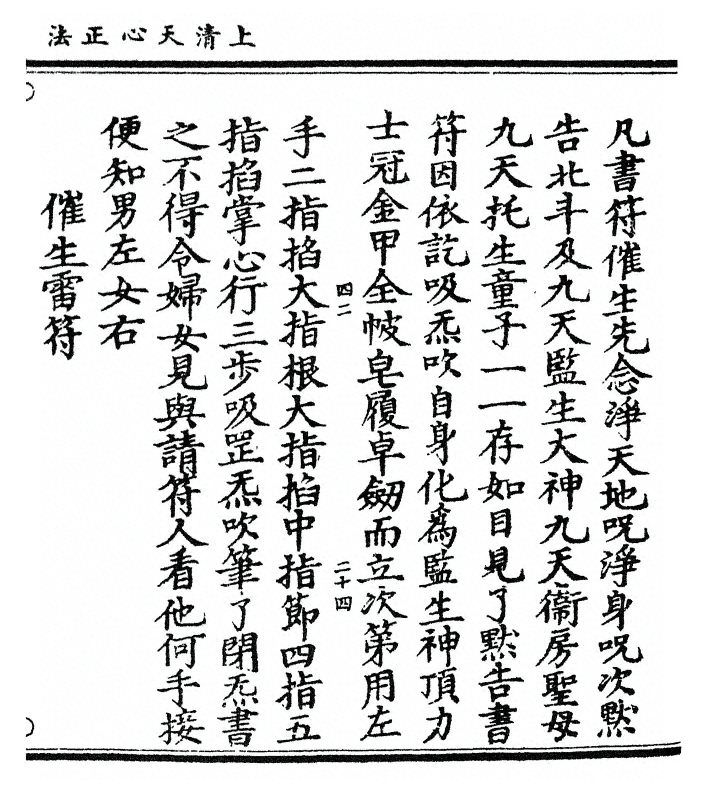 上清天心正法
凡書符催生先念淨天地呪淨身呪次默
告北斗及九天監生大神九天衞房聖母
九天托生童子一一存如目見了默告書
符因依訖吸炁吹自身化爲監生神頂力
士冠金甲全帔皂履卓劒而立次第用左
四二
二十四
手二指掐大指根大指掐中指節四指五
指掐掌心行三步吸罡炁吹筆了閉炁書
之不得令婦女見與請符人看他何手接
便知男左女右
催生雷符